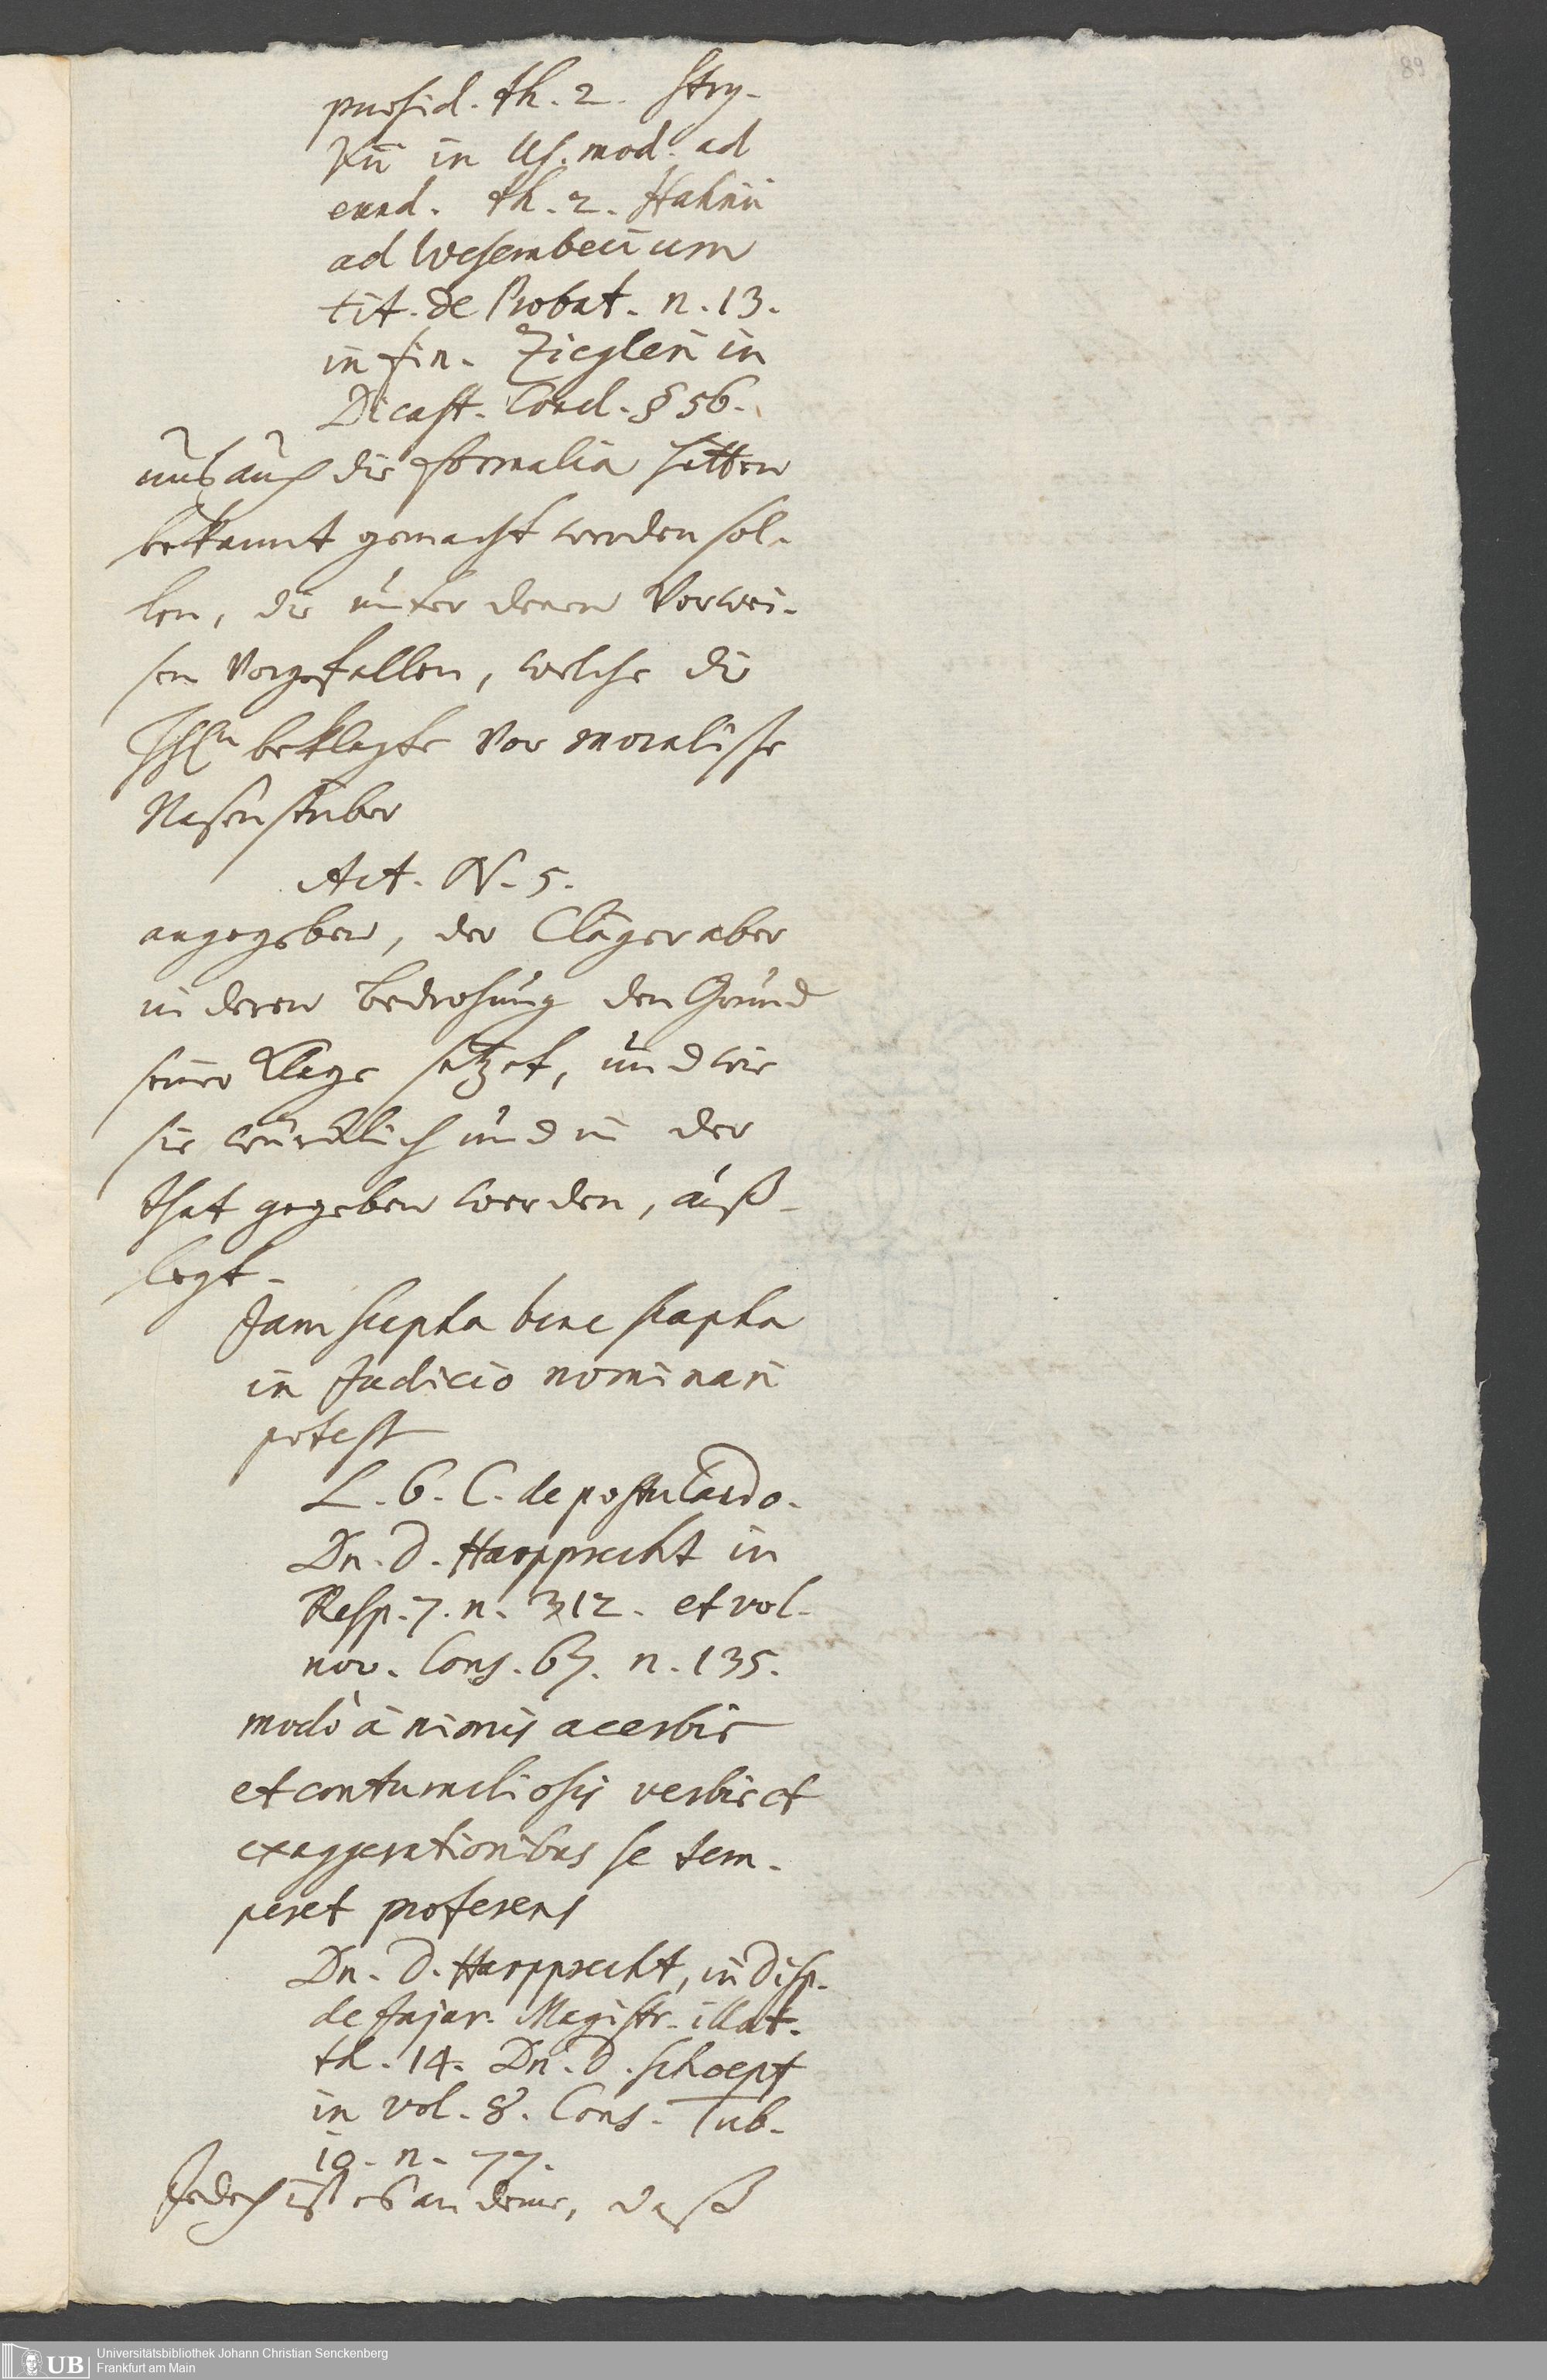 89
præsid. th. 2. Stry-
kii in Us. mod. ad
eund. th. 2. Hahnii
ad Wesembecium
tit. de Probat. n. 13.
in fin. Ziegleri in
Dicast. Concl. § 56.
und auch die formalia hetten
bekannt gemacht werden sol-
len, die unter denen Verwei-
sen vorgefallen, welche die
beklagte vor moralische
Nasenstüber
Act. N. 5.
angegeben, der Cläger aber
in deren Bedrohung den Grund
seiner Klage setzet, und wie
sie würcklich und in der
that gegeben werden, auß-
legt.
Jam scapha bene scapha
in Judicio nominari
potest
L. 6. C. de postulando.
Dn. D. Harpprecht in
Resp. 7. n. 312. et vol.
nov. Cons. 67. n. 135.
modò à nimis acerbis
et contumeliosis verbis et
exaggerationibus se tem-
peret proferens
Dn. D. Harpprecht, in Disp.
de Injur. Magistr. illat.
th. 14. Dn. D. Schoepf
in vol. 8. Cons. Tub.
10. n. 77.
Jedoch ist es an deme, daß
Universitätsbibliothek Johann Christian Senckenberg
UB Frankfurt am Main